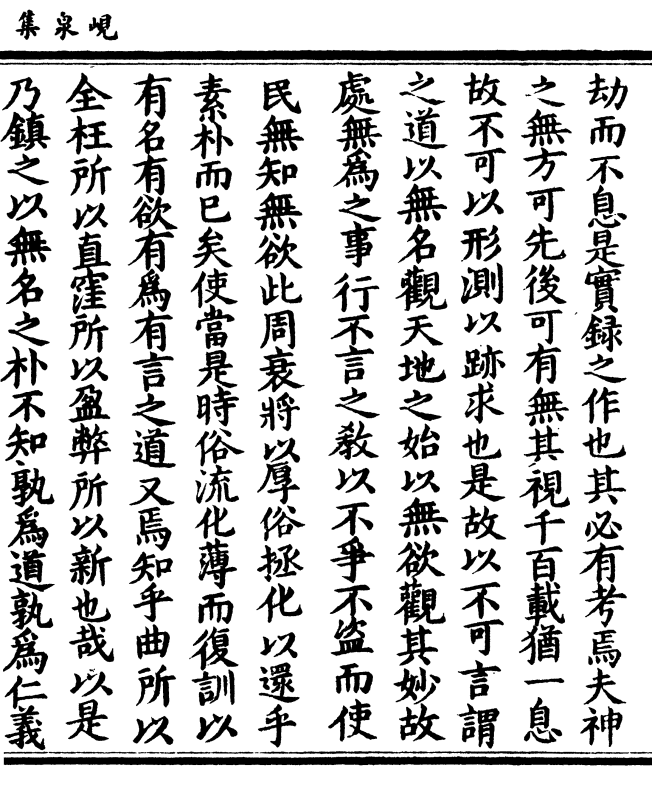 峴泉集
劫而不息是實録之作也其必有考焉夫神
之無方可先後可有無其視千百載猶一息
故不可以形測以跡求也是故以不可言謂
之道以無名觀天地之始以無欲觀其妙故
處無爲之事行不言之教以不爭不盜而使
民無知無欲此周衰將以厚俗拯化以還乎
素朴而已矣使當是時俗流化薄而復訓以
有名有欲有爲有言之道又焉知乎曲所以
全枉所以直窪所以盈弊所以新也哉以是
乃鎮之以無名之朴不知孰爲道孰爲仁義